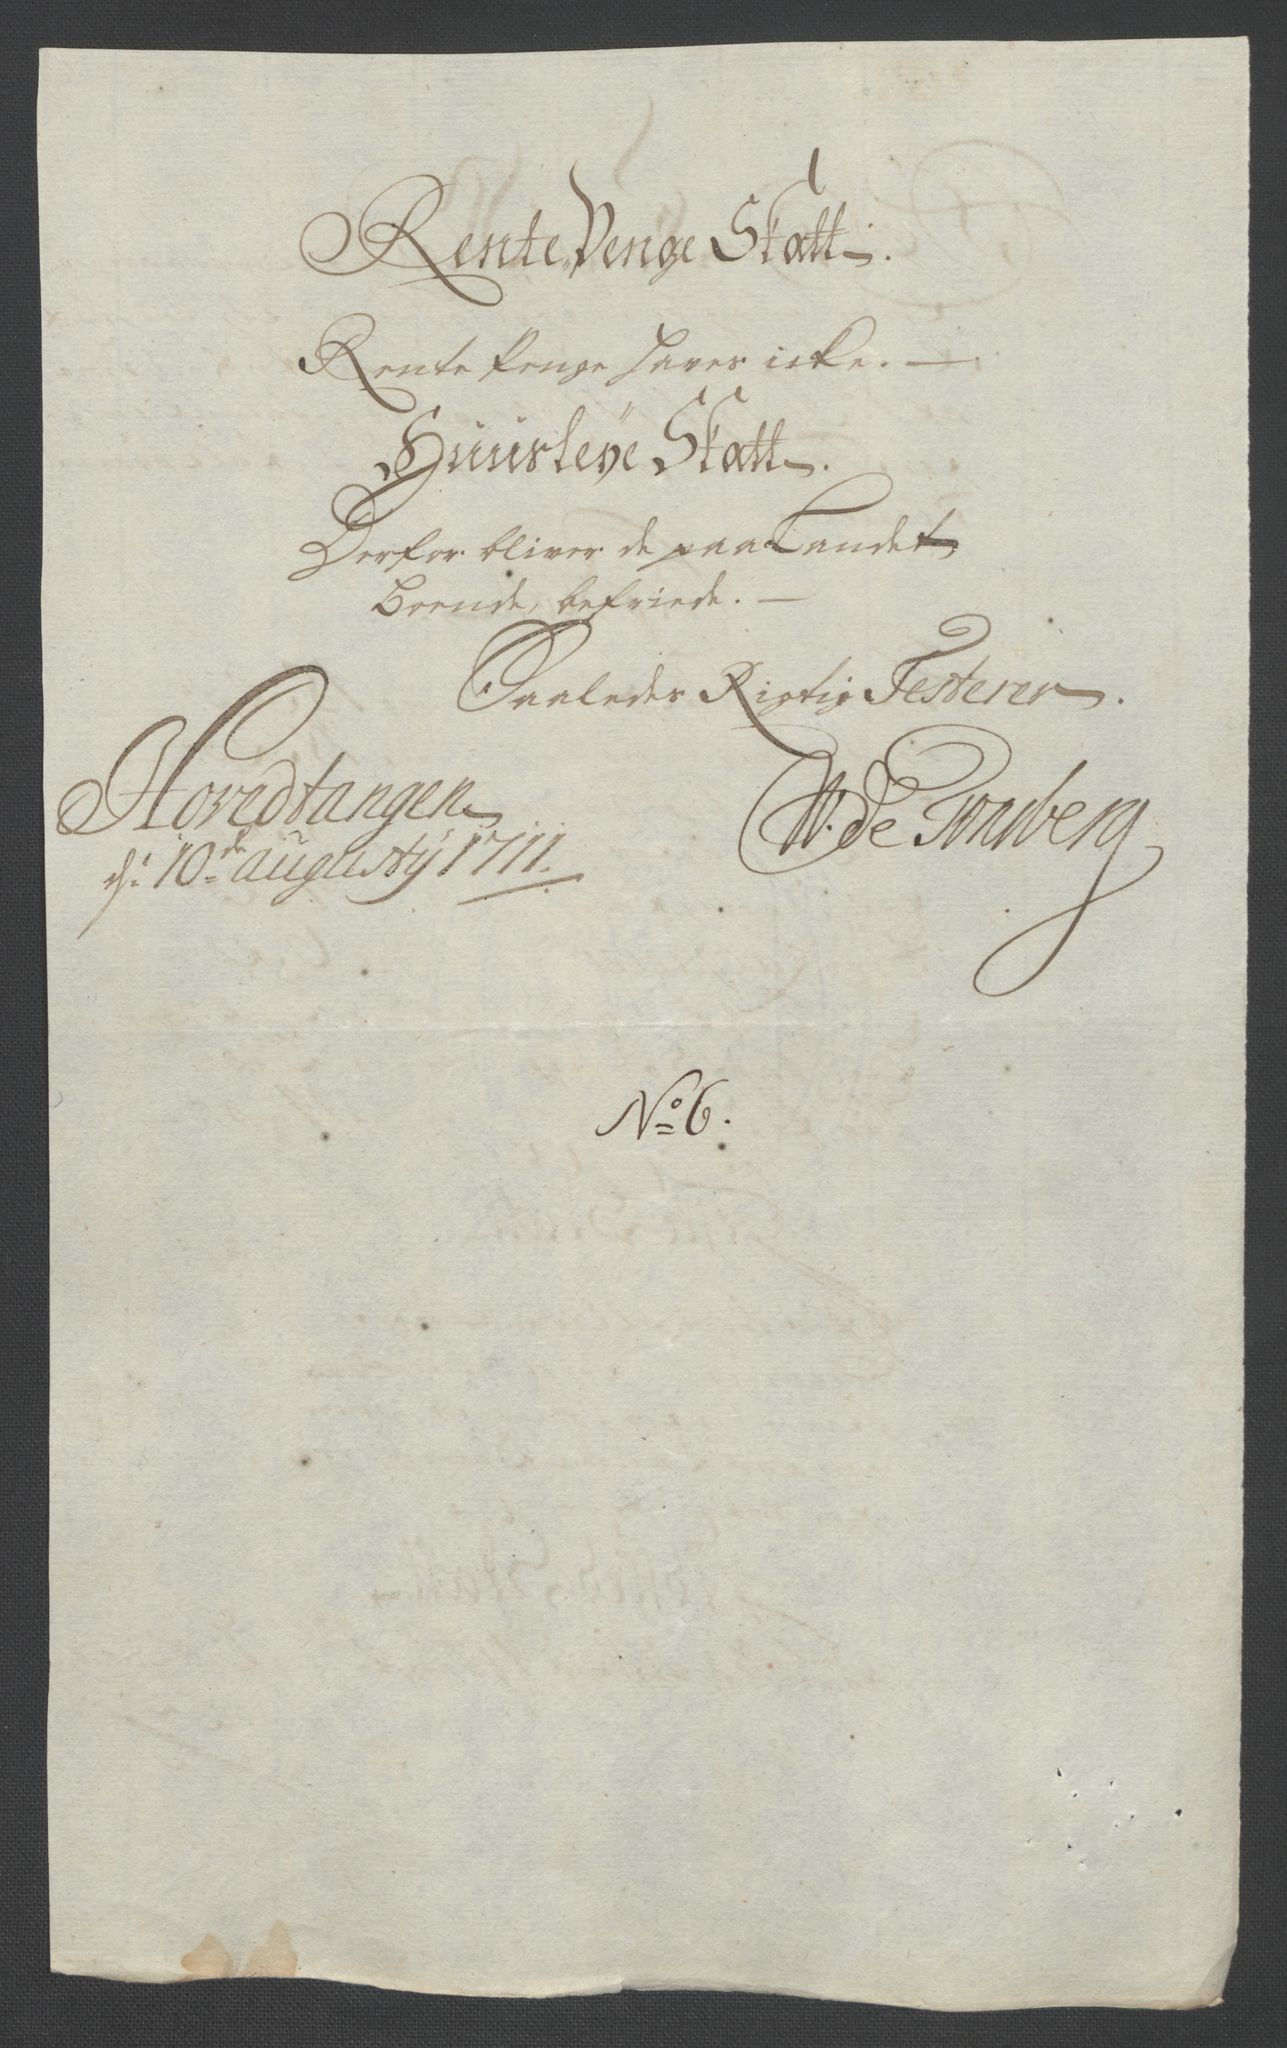 Rente Penge Skatt.
Rente Penge haves icke. —
Huusleye Skatt.
Derfor bliver de paa Landet
boende, befriede. —
Saaledes Rigtig Testerer.
Hovedtangen
d: 10de augustij 1711.
W. de Tonsberg
No 6.